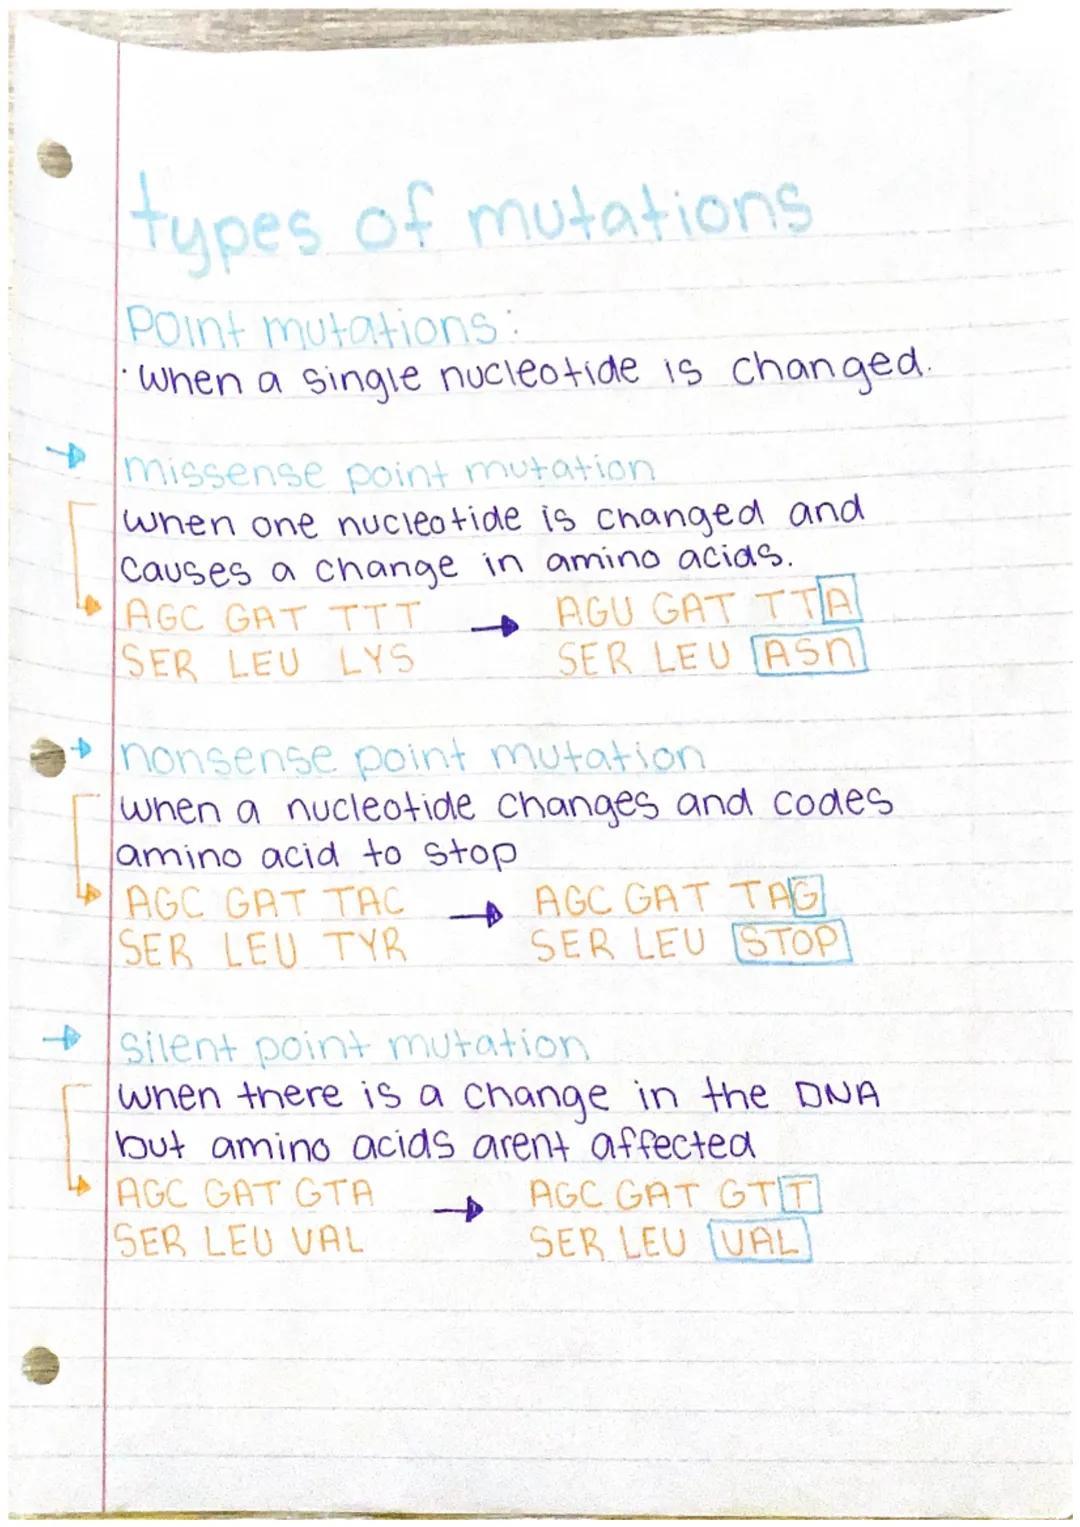 types of mutations
Point mutations:
· When a single nucleotide is changed.
→ missense point mutation
When one nucleotide is changed and
causes a change in amino acids.
AGC GAT TTT → AGU GAT TTA
SER LEU LYS SER LEU ASN
→ nonsense point mutation
When a nucleotide changes and codes
amino acid to stop
AGC GAT TAC → AGC GAT TAG
SER LEU TYR SER LEU STOP
→ silent point mutation
When there is a change in the DNA
but amino acids arent affected
AGC GAT GTA → AGC GAT GTT
SER LEU VAL SER LEU VAL